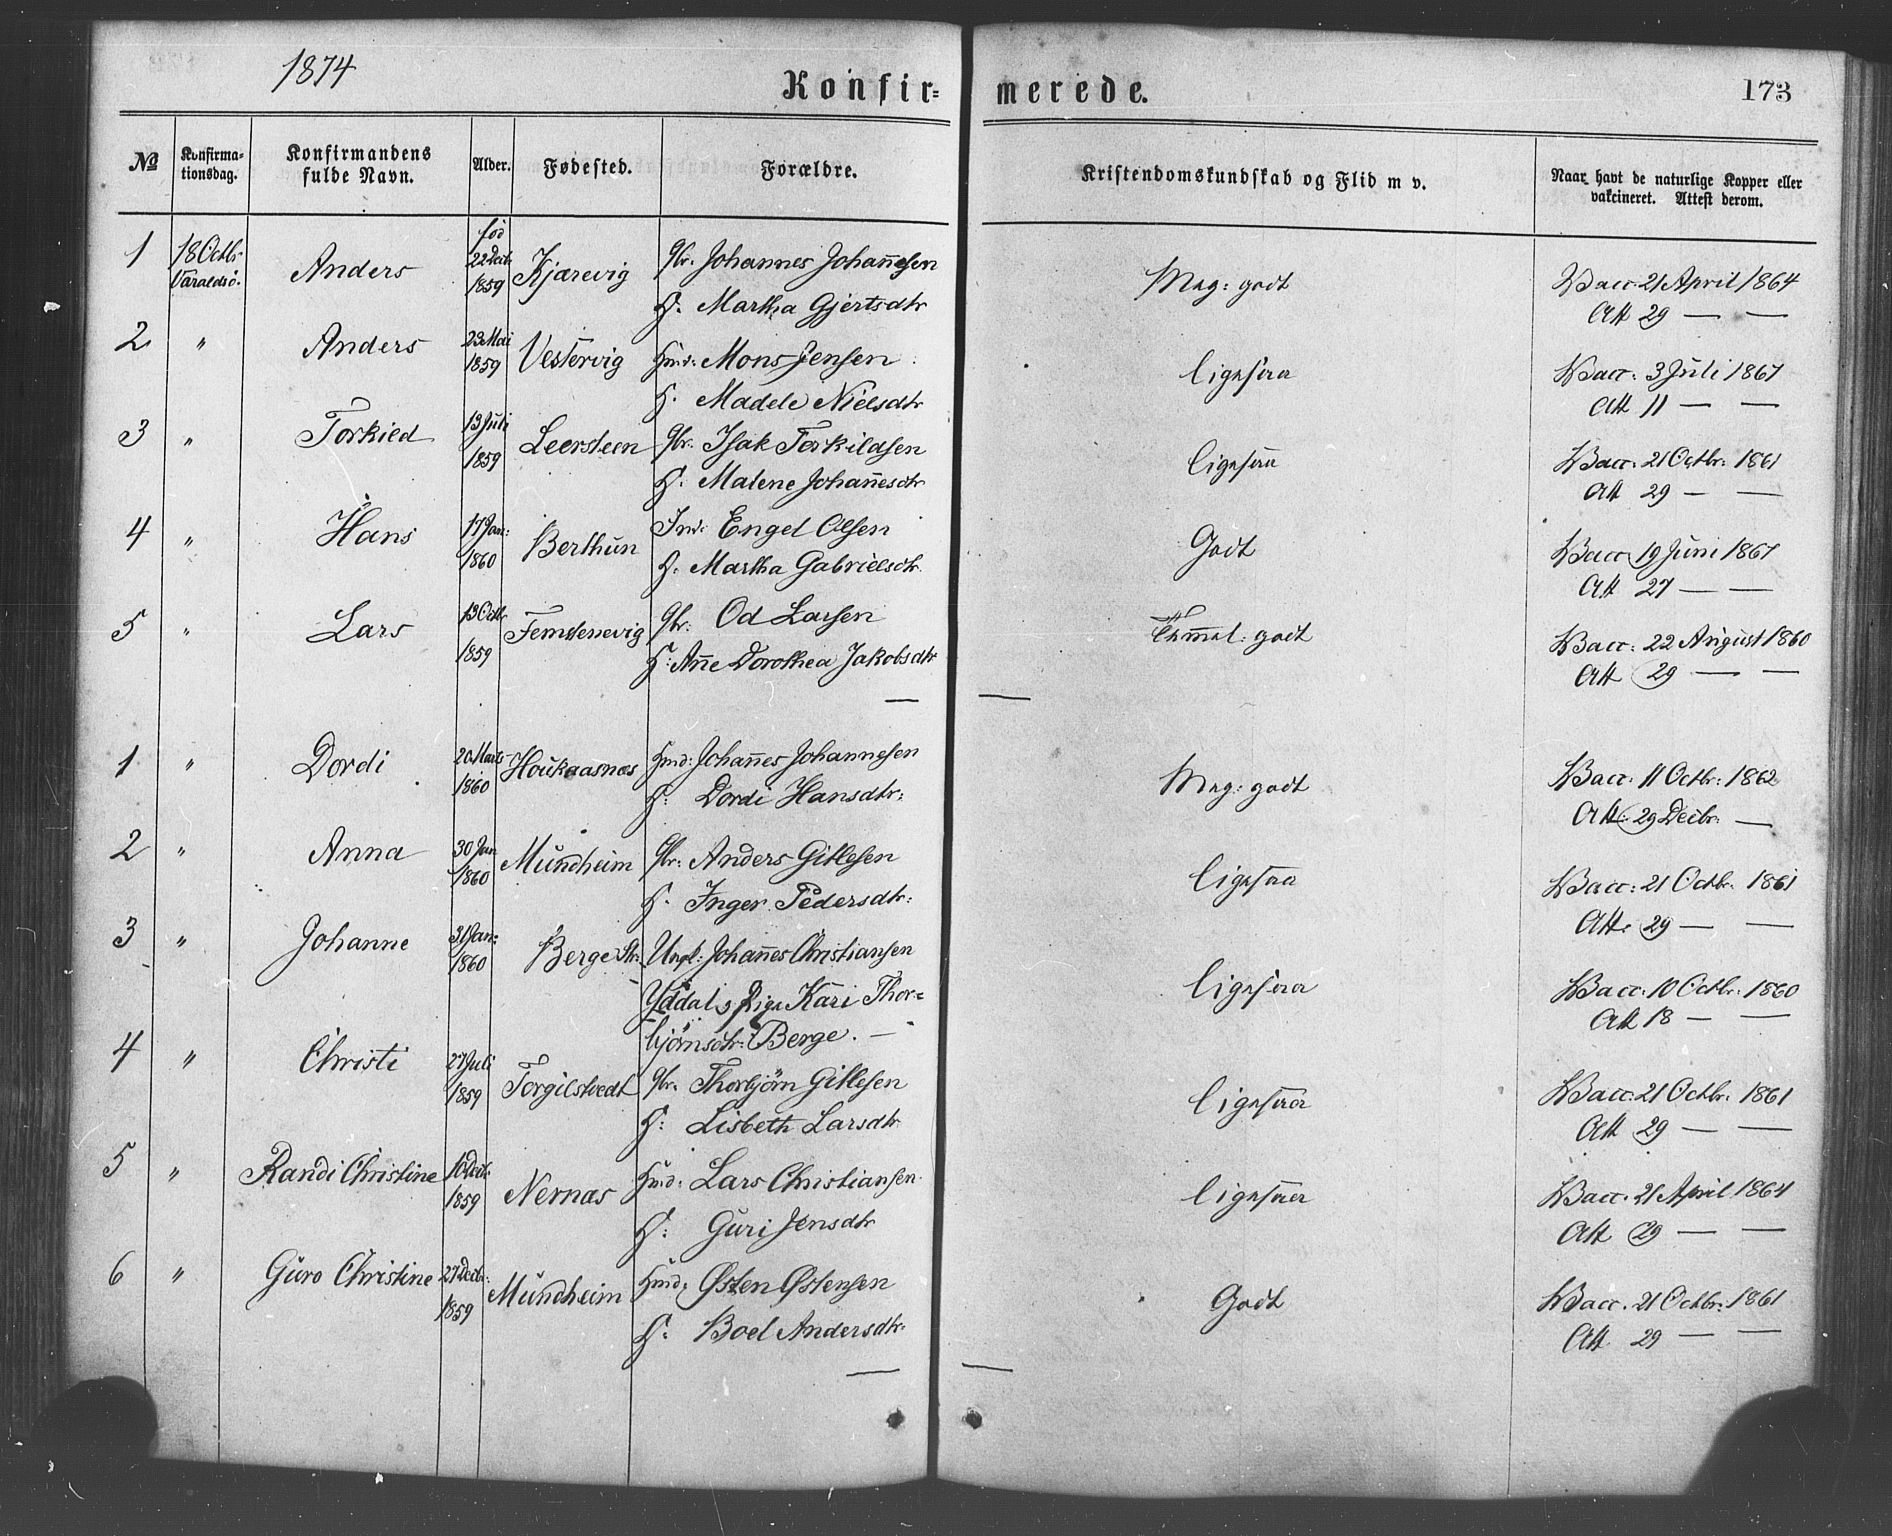 1874
Konfir= merede. 173
No Konfirma-tionsdag. Konfirmandens fulde Navn. Alder. Fødested. Forældre. Kristendomskundskab og Flid m v. Naar havt de naturlige Kopper eller vakcineret. Attest derom.
1 18 Octbr Varaldsö. Anders fød 22 Decbr 1859 Kjærevig Gbr. Johannes Johannesen Meg: godt Vacc. 21 April 1864
H. Martha Gjertsdtr Att 29 — —
2 " Anders 23 Mai 1859 Vestervig Hmd: Mons Jensen ligesaa Vacc: 3 Juli 1867
H. Madele Nielsdtr Att 11 — —
3 " Torkied 13 Juli 1859 Leersteen Gbr. Isak Torkildsen ligesaa Vacc: 21 Octbr: 1861
H: Malene Johannesdtr Att 29 — —
4 " Hans 17 Jan: 1860 Berthun Ind: Engel Olsen Godt Vacc 19 Juni 1867
H. Martha Gabrielsdtr. Att 27 — —
5 " Lars 13 Octbr 1859 Femstenevig Gbr: Od Larsen godt Vacc: 22 August 1860
H: Anne Dorothea Jakobsdtr Att 29 — —
1 " Dordi 20 Marts 1860 Houkaasnæs Hmd: Johannes Johannesen Meg: godt Vacc: 11 Octbr: 1862
H: Dordi Hansdtr: Att: 29 Decbr: —
2 " Anna 30 Jan 1860 Mundheim Gbr: Anders Gitlesen ligesaa Vacc: 21 Octbr: 1861
H. Inger Pedersdtr: Att: 29 — —
3 " Johanne 31 Jan: 1860 Berge Str. Ungk: Johannes Christiansen
Yddal, Pige Kari Thor= ligesaa Vacc: 10 Octbr: 1860
bjørnsdtr: Berge. — Att 18 — —
4 " Christi 27 Juli 1859 Torgilstvedt Gbr. Thorbjørn Gitlesen ligesaa Vacc: 21 Octbr: 1861
H: Lisbeth Larsdtr Att 29 — —
5 " Randi Christine 10 Decbr 1859 Nernæs Hmd: Lars Christiansen ligesaa Vacc. 21 April 1864
H: Guri Jensdtr Att 29 — —
6 " Guro Christine 27 Decbr: 1859 Mundheim Hmd: Østen Østensen Godt Vacc. 21 Octbr: 1861
H: Boel Andersdtr. Att 29 — —